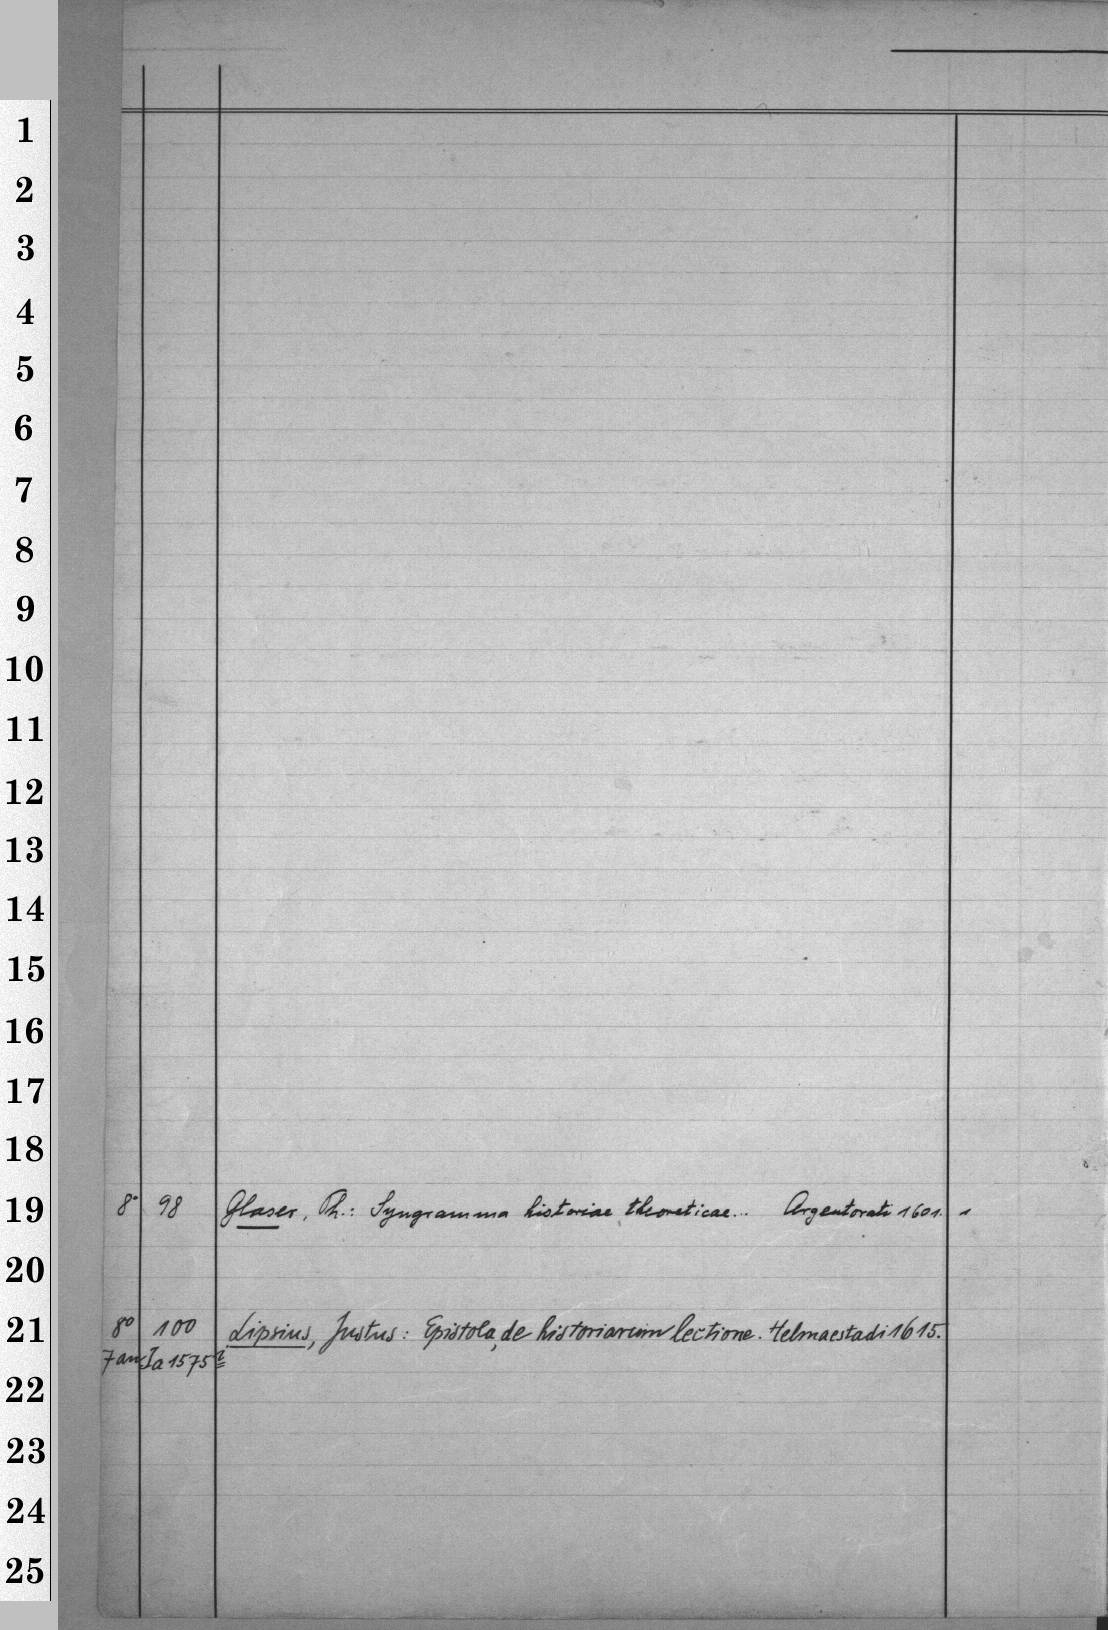 1
2
3
4
5
6
7
8
9
10
11
12
13
14
15
16
17
18
19 8° 98 Glaser, Ph.: Syngramma historiae theoreticae... Argentorati 1601. 1
20
21 8° 100 Lipsius, Justus: Epistola, de historiarum lectione. Helmaestadi 1615.
7 an Ja 1575
22
23
24
25